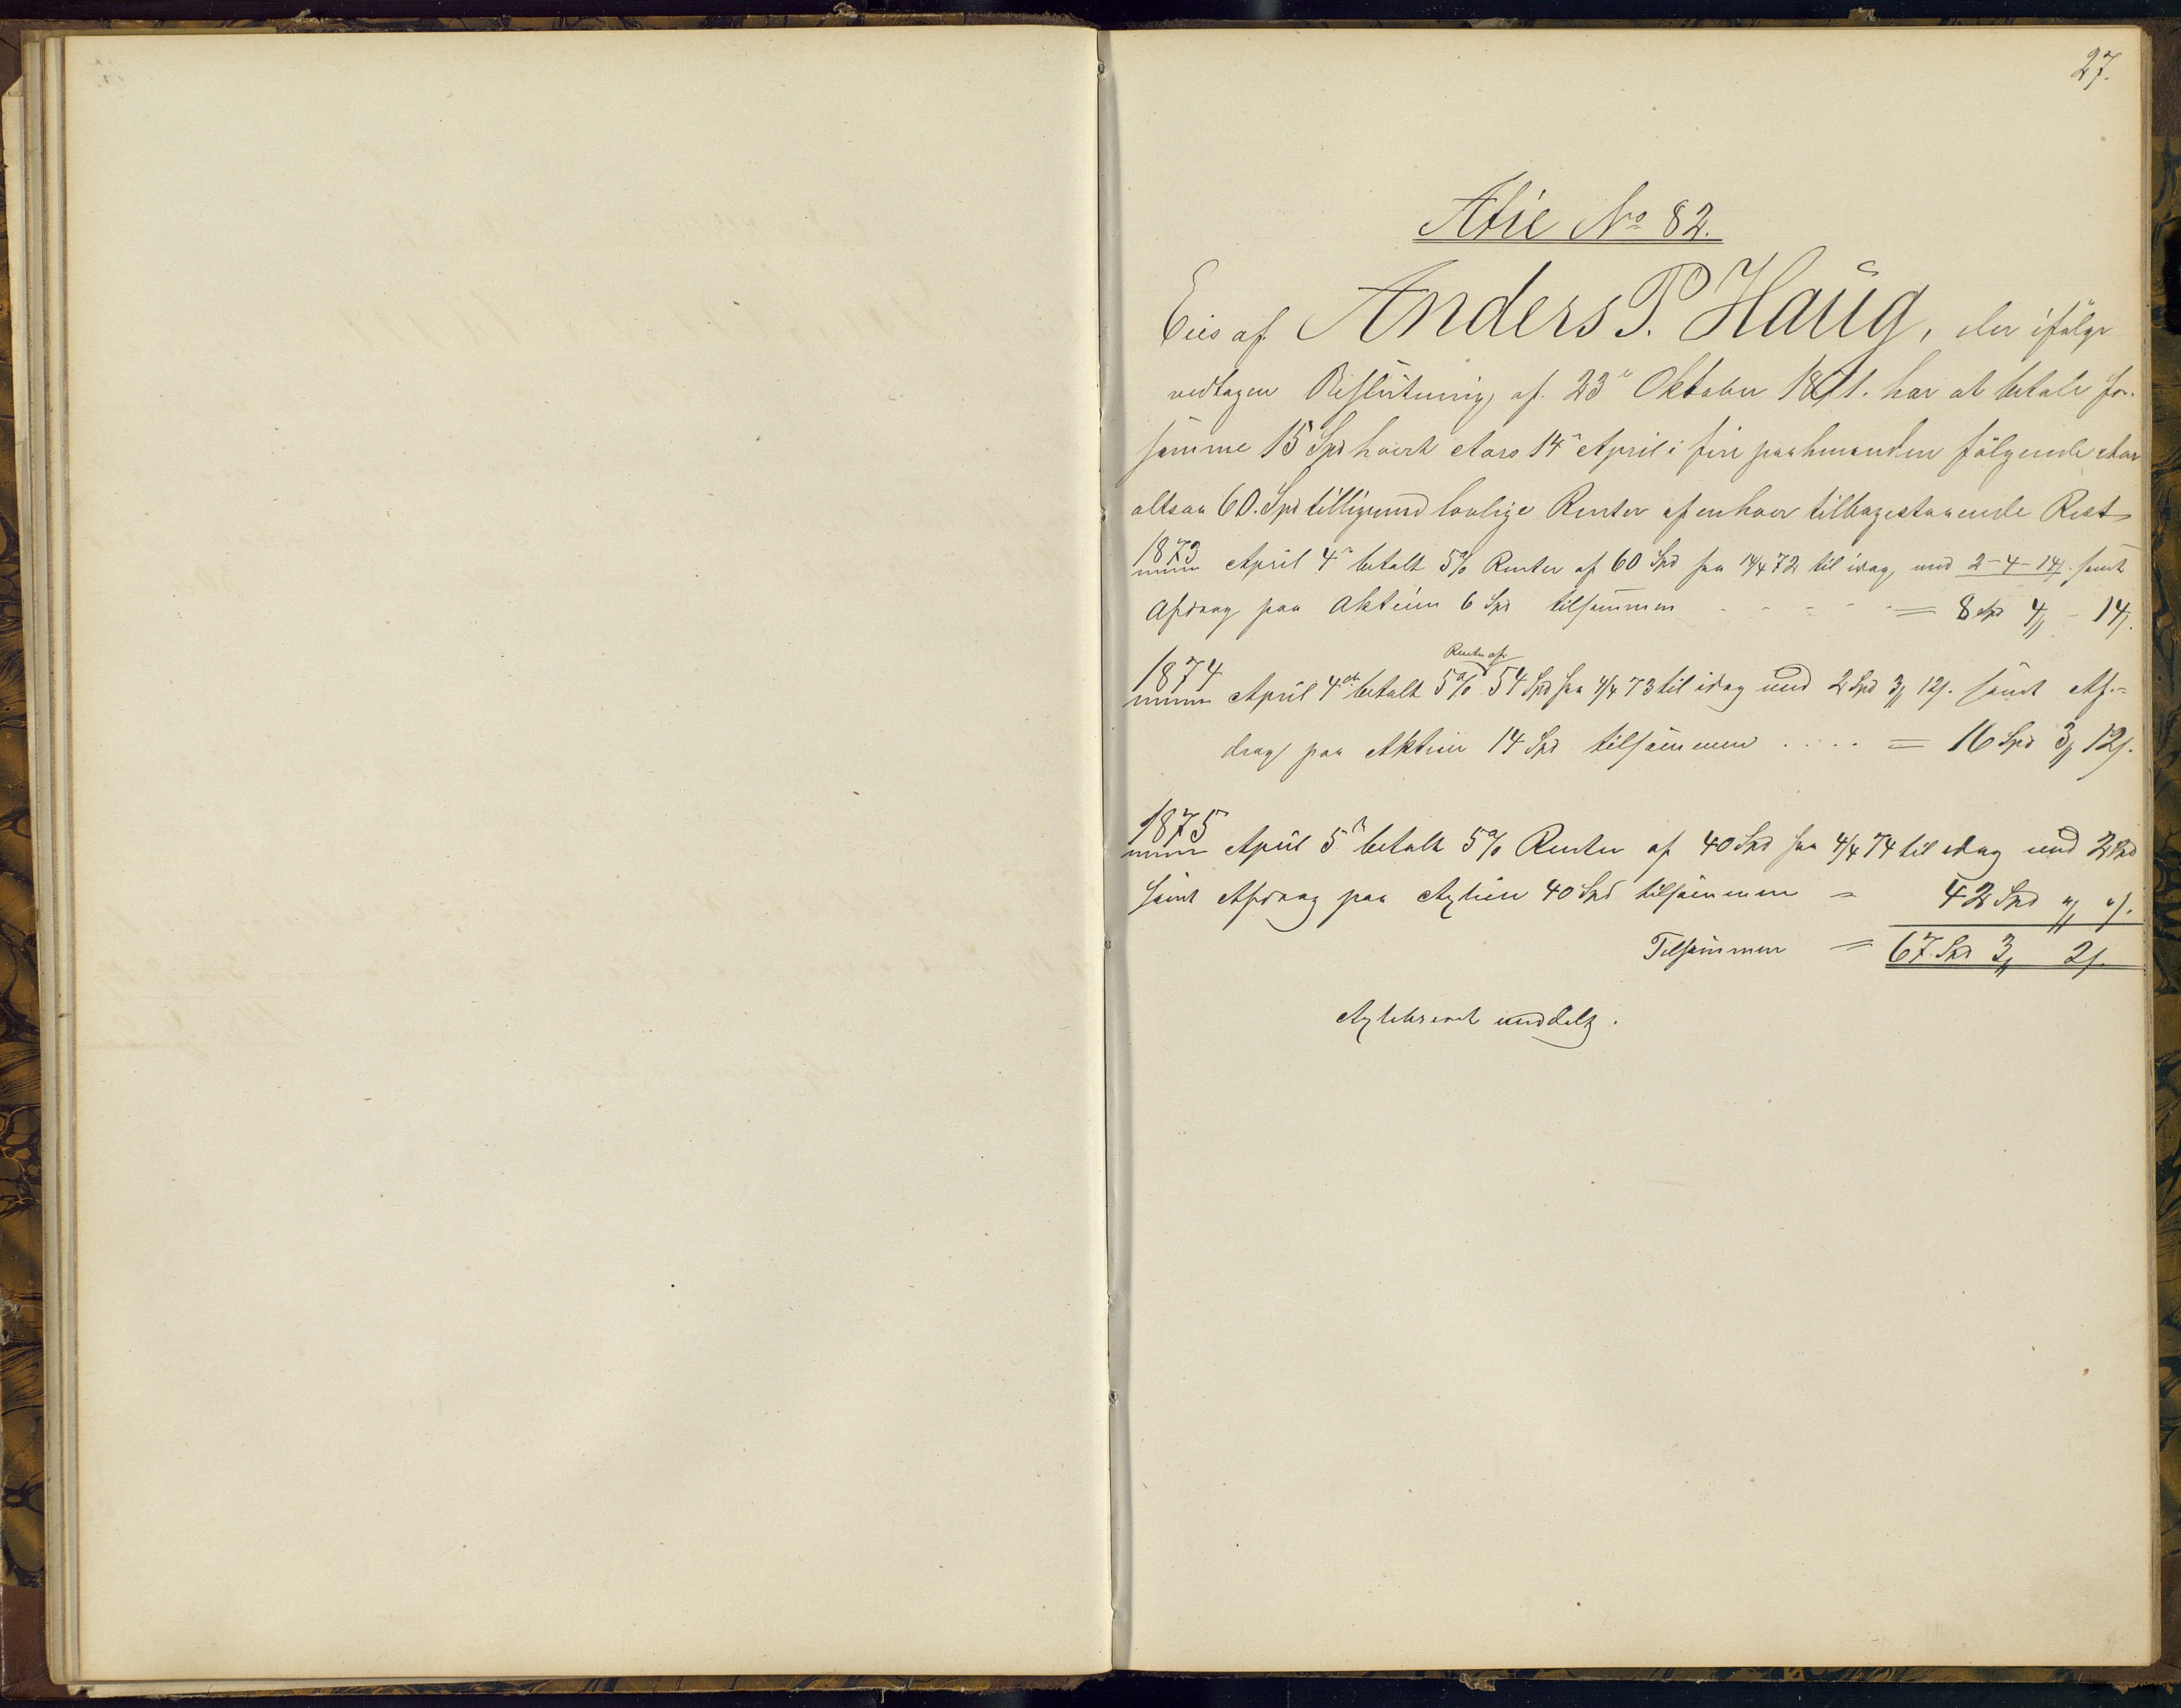 27.
Atie No 82.
Eies af Anders P. Haug, der ifølge
vedtagen Beslutning af 23de Oktober 1871. har at betale for
samme 15 Spd hvert Aars 14de April i fire paahinanden følgende Aar
altsaa 60. Spd tilligemed lovlige Renter af enhver tilbagestaaende Rest
1873 April 4de betalt 5% Renter af 60 Spd fra 14/4 72 til idag med 2-4-14 s. samt
Afdrag paa Aktien 6 Spd tilsammen - - - - - = 8 Spd 4 - 14 s.
Renter af
1874 April 4de betalt 5% 54 Spd fra 4/4 73 til idag med 2 Spd 3 12 s. samt Af-
drag paa Aktien 14 Spd tilsammen . . . . = 16 Spd 3 12 s.
1875 April 5te betalt 5% Renter af 40 Spd fra 4/4 74 til Dag med 2 Spd
samt Afdrag paa Axtien 40 Spd tilsammen = 42 Spd " " s.
Tilsammen = 67. Spd 3 2 s.
meddelt.